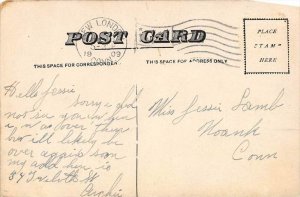 NEW LONDON
CONN
19 09
POST CARD
THIS SPACE FOR CORRESPONDENCE
THIS SPACE FOR ADDRESS ONLY.
PLACE
STAMP
HERE
Hello Jessie
Sorry I did
not see you when
I was over there
but I'll likely be
over again soon
my address here is
Miss Jessie Lamb
Noank
Conn